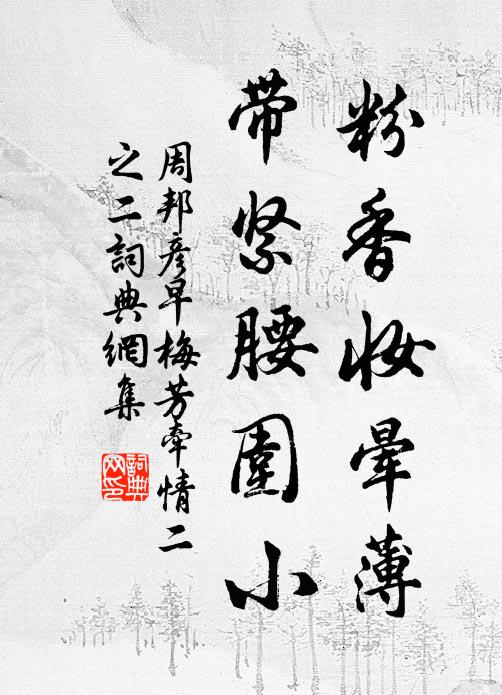 粉香妆晕薄
带紧腰围小
周邦彦早梅芳牵情二
之二詞典網集
詞典
网印